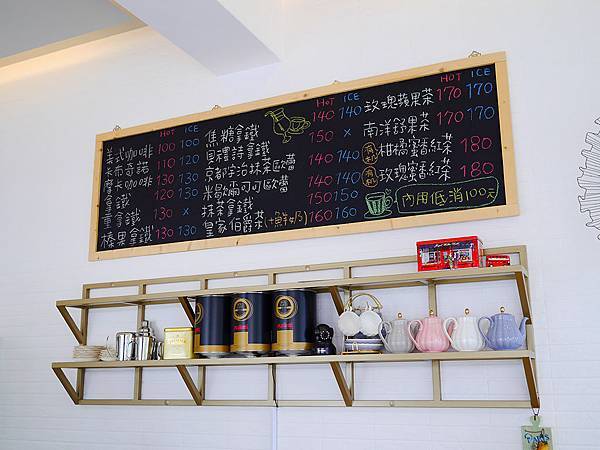 HOT ICE
美式咖啡 100 100
卡布奇諾 110 120
摩卡咖啡 130 130
拿鐵 120 120
重拿鐵 130 ×
榛果拿鐵 130 130
HOT ICE
焦糖拿鐵 140 140
黑糖拿鐵 150 ×
京都宇治抹茶歐蕾 140 140
米歇爾可可歐蕾 140 140
抹茶拿鐵 150 150
皇家伯爵茶(+鮮奶) 160 160
HOT ICE
玫瑰蘋果茶 170 170
南洋舒果茶 170 170
有機 柑橘蜜紅茶 180
有機 玫瑰蜜紅茶 180
內用低消100元